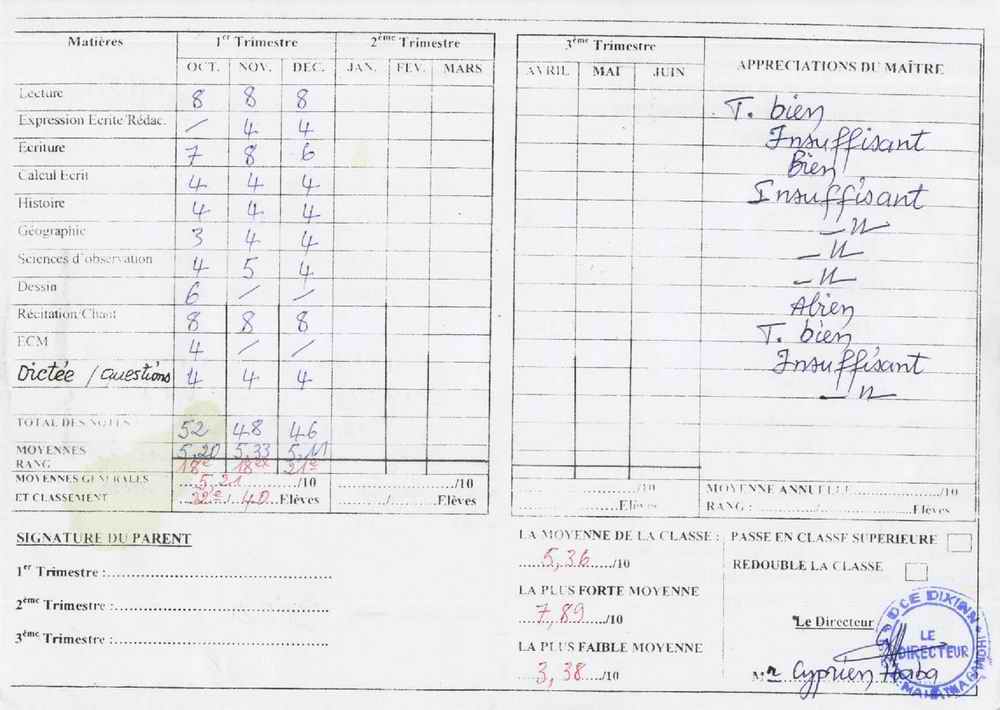 Matières 1er Trimestre 2ème Trimestre
OCT. NOV. DEC. JAN. FEV. MARS
Lecture 8 8 8
Expression Ecrite/Rédac. / 4 4
Ecriture 7 8 6
Calcul Ecrit 4 4 4
Histoire 4 4 4
Géographie 3 4 4
Sciences d'observation 4 5 4
Dessin 6 / /
Récitation/Chant 8 8 8
ECM 4 / /
Dictée / Questions 4 4 4
TOTAL DES NOTES 52 48 46
MOYENNES 5,20 5,33 5,11
RANG 18e 18ex 21e
MOYENNES GENERALES ....5,21......../10 ................/10
ET CLASSEMENT ..22e../..40..Elèves ....../........Elèves
SIGNATURE DU PARENT
1er Trimestre :........................................
2ème Trimestre :........................................
3ème Trimestre :........................................
3ème Trimestre
AVRIL MAI JUIN
APPRECIATIONS DU MAÎTRE
T. bien
Insuffisant
Bien
Insuffisant
_ // _
_ // _
_ // _
Abien
T. bien
Insuffisant
_ // _
................/10
................Elèves
MOYENNE ANNUELLE ................/10
RANG : ............/................Elèves
LA MOYENNE DE LA CLASSE :
....5,36..../10
LA PLUS FORTE MOYENNE
...7,89.../10
LA PLUS FAIBLE MOYENNE
...3,38..../10
PASSE EN CLASSE SUPERIEURE
REDOUBLE LA CLASSE
Le Directeur
Mr Cyprien Haba
DCE DIXINN
LE
DIRECTEUR
MAHATMA GANDHI